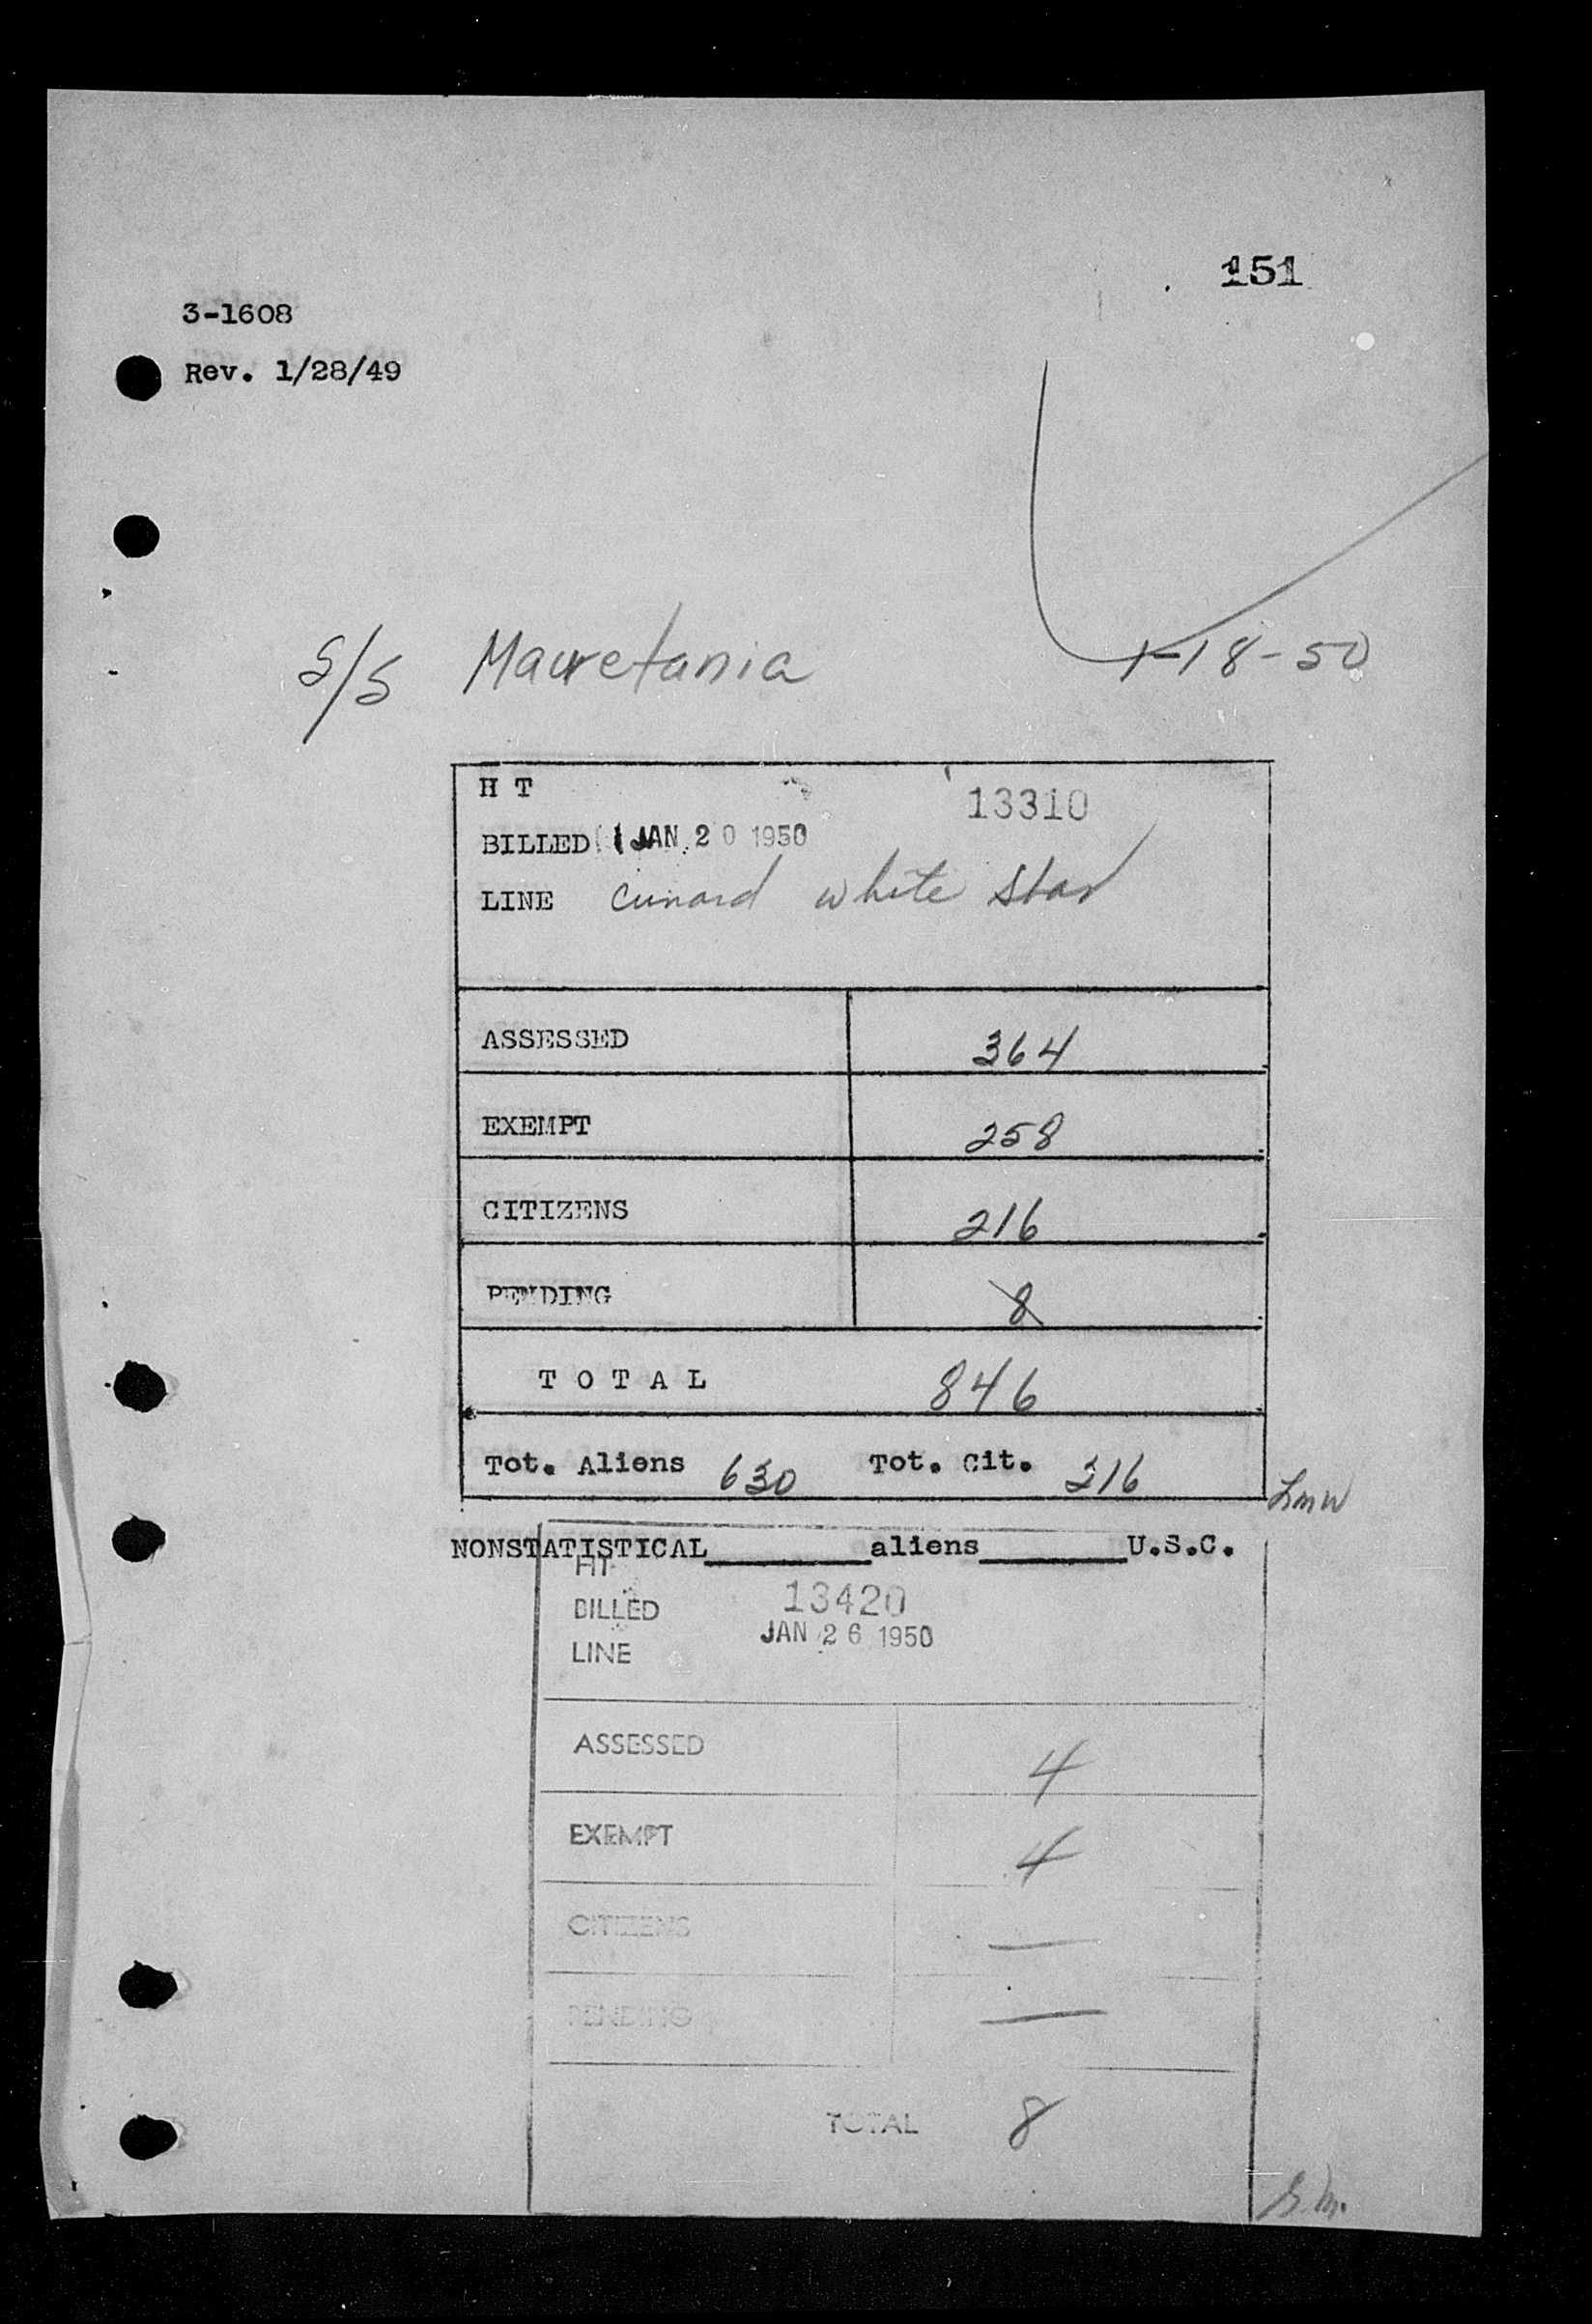 151
3-1608
Rev. 1/28/49
S/S Mauretania 1-18-50
H T 13310
BILLED JAN 20 1950
LINE Cunard White Star
ASSESSED 364
EXEMPT 258
CITIZENS 216
PENDING 8
TOTAL 846
Tot. Aliens 630 Tot. Cit. 216
LMW
NONSTATISTICAL aliens U.S.C.
HT
BILLED 13420
JAN 26 1950
LINE
ASSESSED 4
EXEMPT 4
CITIZENS —
PENDING —
TOTAL 8